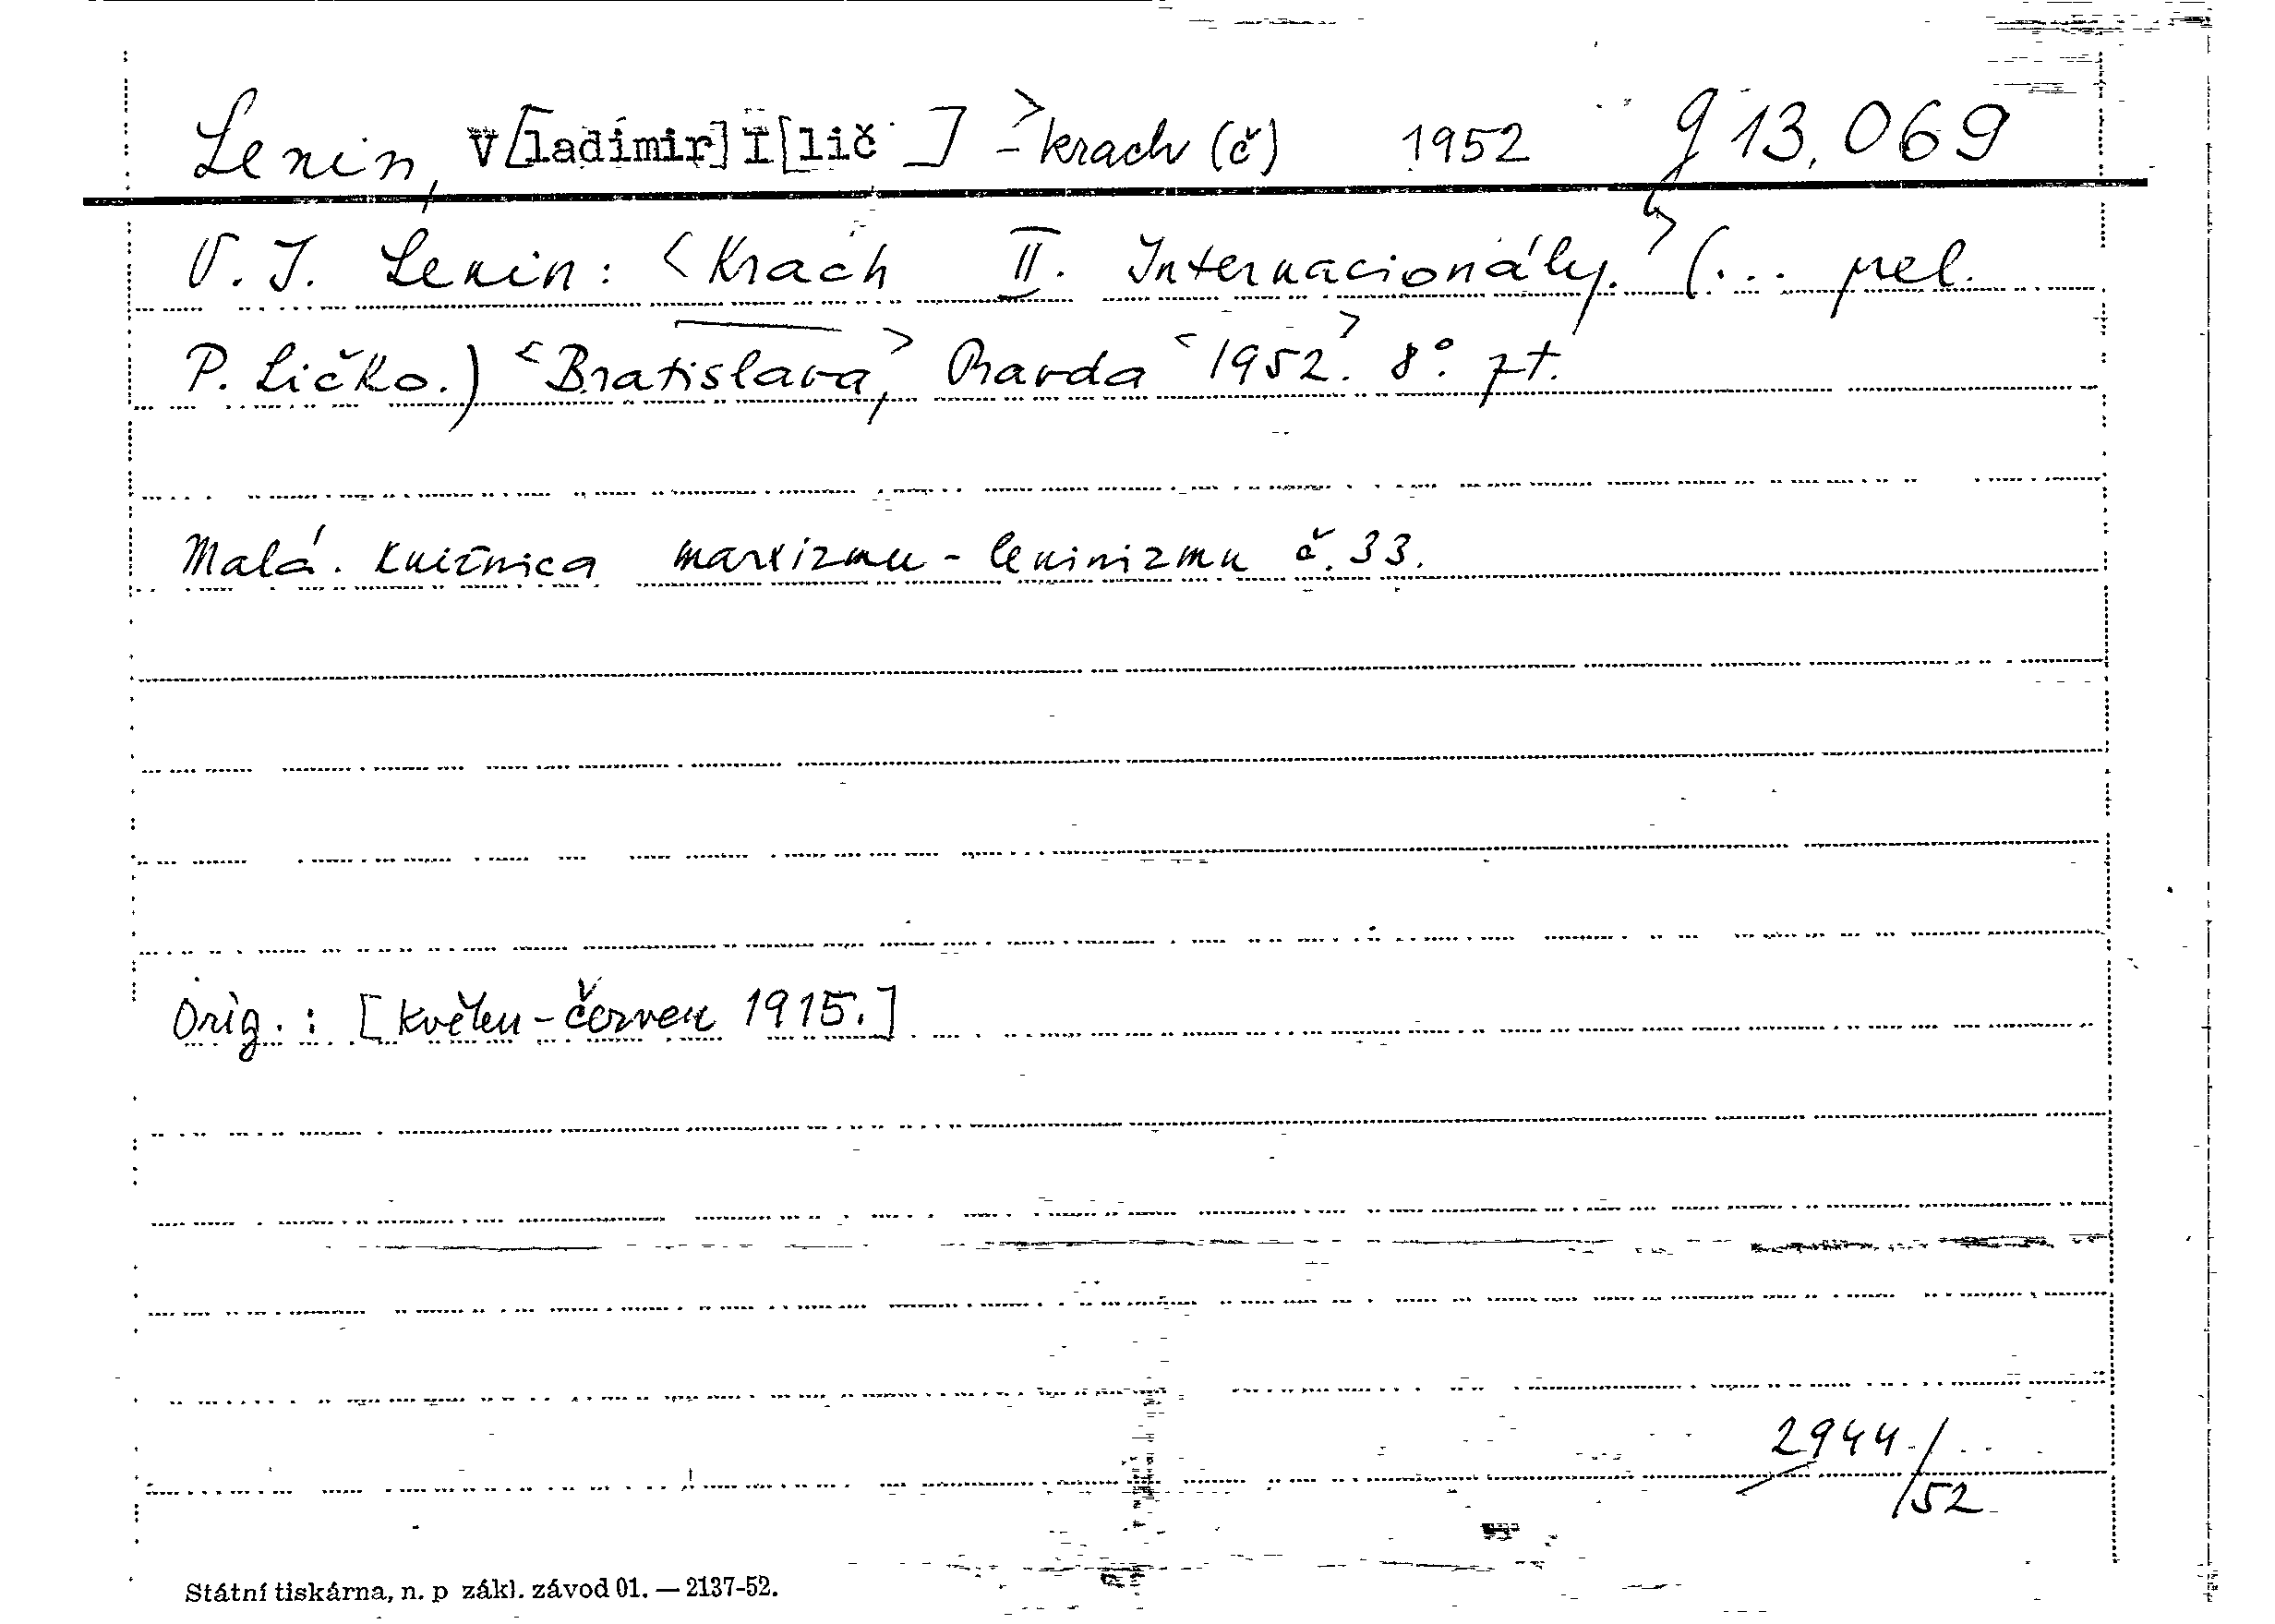 Lenin, V[ladimir] I[lič ] - krach (č) 1952 g 13.069
V. I. Lenin: <Krach II. Internacionály.> (... prel.
P. Ličko.) <Bratislava,> Pravda <1952.> 8°. zt.
Malá knižnica marxizmu-leninizmu č. 33.
Orig.: [květen-červen 1915.]
2944/52
Státní tiskárna, n. p zákl. závod 01. — 2137-52.